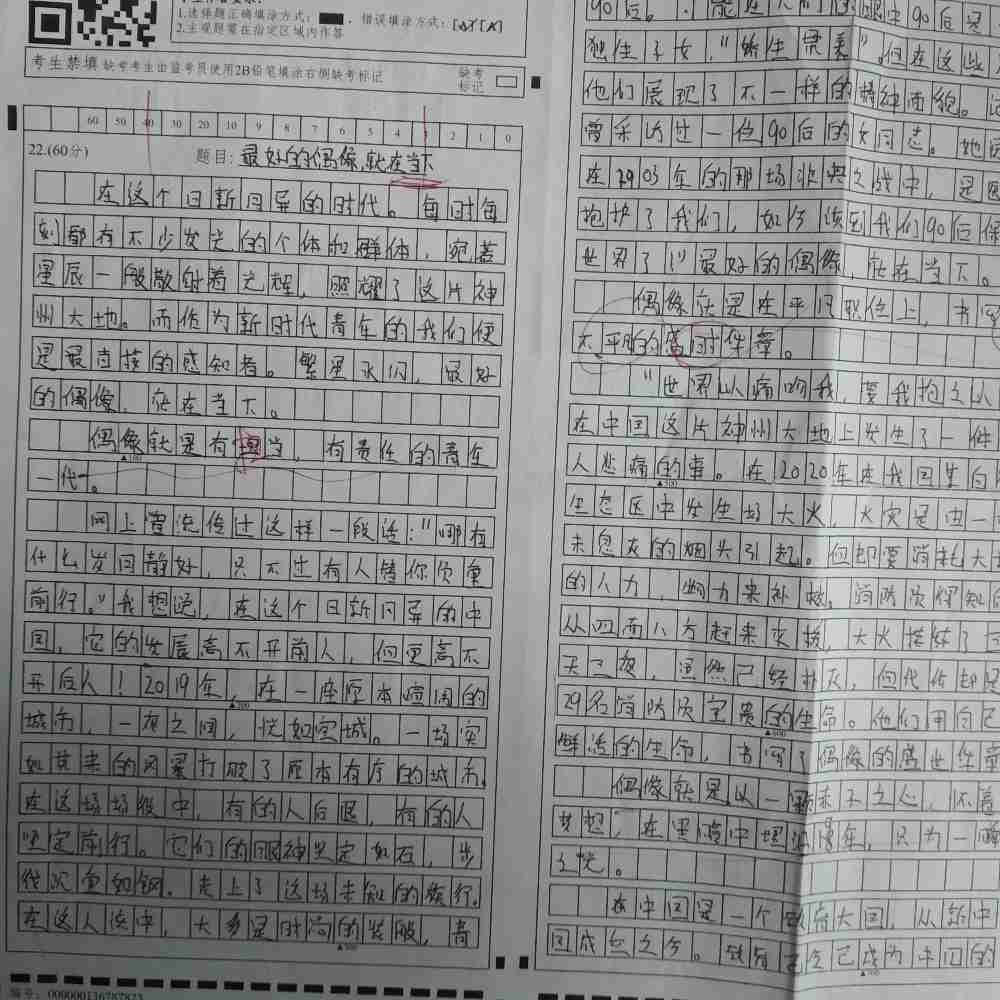 1.选择题正确填涂方式: 错误填涂方式:
2.主观题需在指定区域内作答
考生禁填 缺考考生由监考员使用2B铅笔填涂右侧缺考标记
缺考
标记
60 50 40 30 20 10 9 8 7 6 5 4 3 2 1 0
22.(60分)
题目:最好的偶像,就在当下
在这个日新月异的时代。每时每
刻都有不少发光的个体和群体,宛若
星辰一般散射着光辉,照耀了这片神
州大地。而作为新时代青年的我们便
是最直接的感知者。繁星永闪,最好
的偶像,就在当下。
偶像就是有担当,有责任的青年
▲100
一代。
网上曾流传过这样一段话:"哪有
什么岁月静好,只不过有人替你负重
前行。"我想说,在这个日新月异的中
国,它的发展离不开前人,但更离不
开后人!2019年,在一座原本喧闹的
▲200
城市,一夜之间,恍如空城。一场突
如其来的风暴打破了原本有序的城市。
在这场场役中,有的人后退,有的人
坚定前行。它们的眼神坚定如石,步
伐沉重如钢.走上了这场未知的旅行.
在这人流中,大多是时尚的发般,青
▲300
编号:000000136787823
90后。
独生子女,"娇生惯养"。但在这些
他们展现了不一样的精神面貌。
曾采访过一位90后的女同志。她
在2903年的那场非典之战中,是
抱护了我们,如今该到我们90后保
世界了!"最好的偶像,就在当下。
偶像就是在平凡职位上,书写
不平凡的盛时华章。
"世界以痛吻我,要我抱之以
在中国这片神州大地上发生了一件
人悲痛的事。在2020年在我国
▲500
生态区中发生场大火,火灾是由一
未息灰的烟头引起。但却要消耗大
的人力,物力来补救。消防员得知
从四面八方赶来灭救,大火持续了
天三夜,虽然已经扑灭,但代价却是
29名消防员宝贵的生命。他们用自己
▲600
鲜活的生命,书写了偶像的盛世华章
偶像就是以一颗赤子之心,怀着
梦想;在黑暗中埋没多年,只为一瞬
之恍。
在中国是一个 大国,从新中
国成立之今。 已成为中国的
▲700